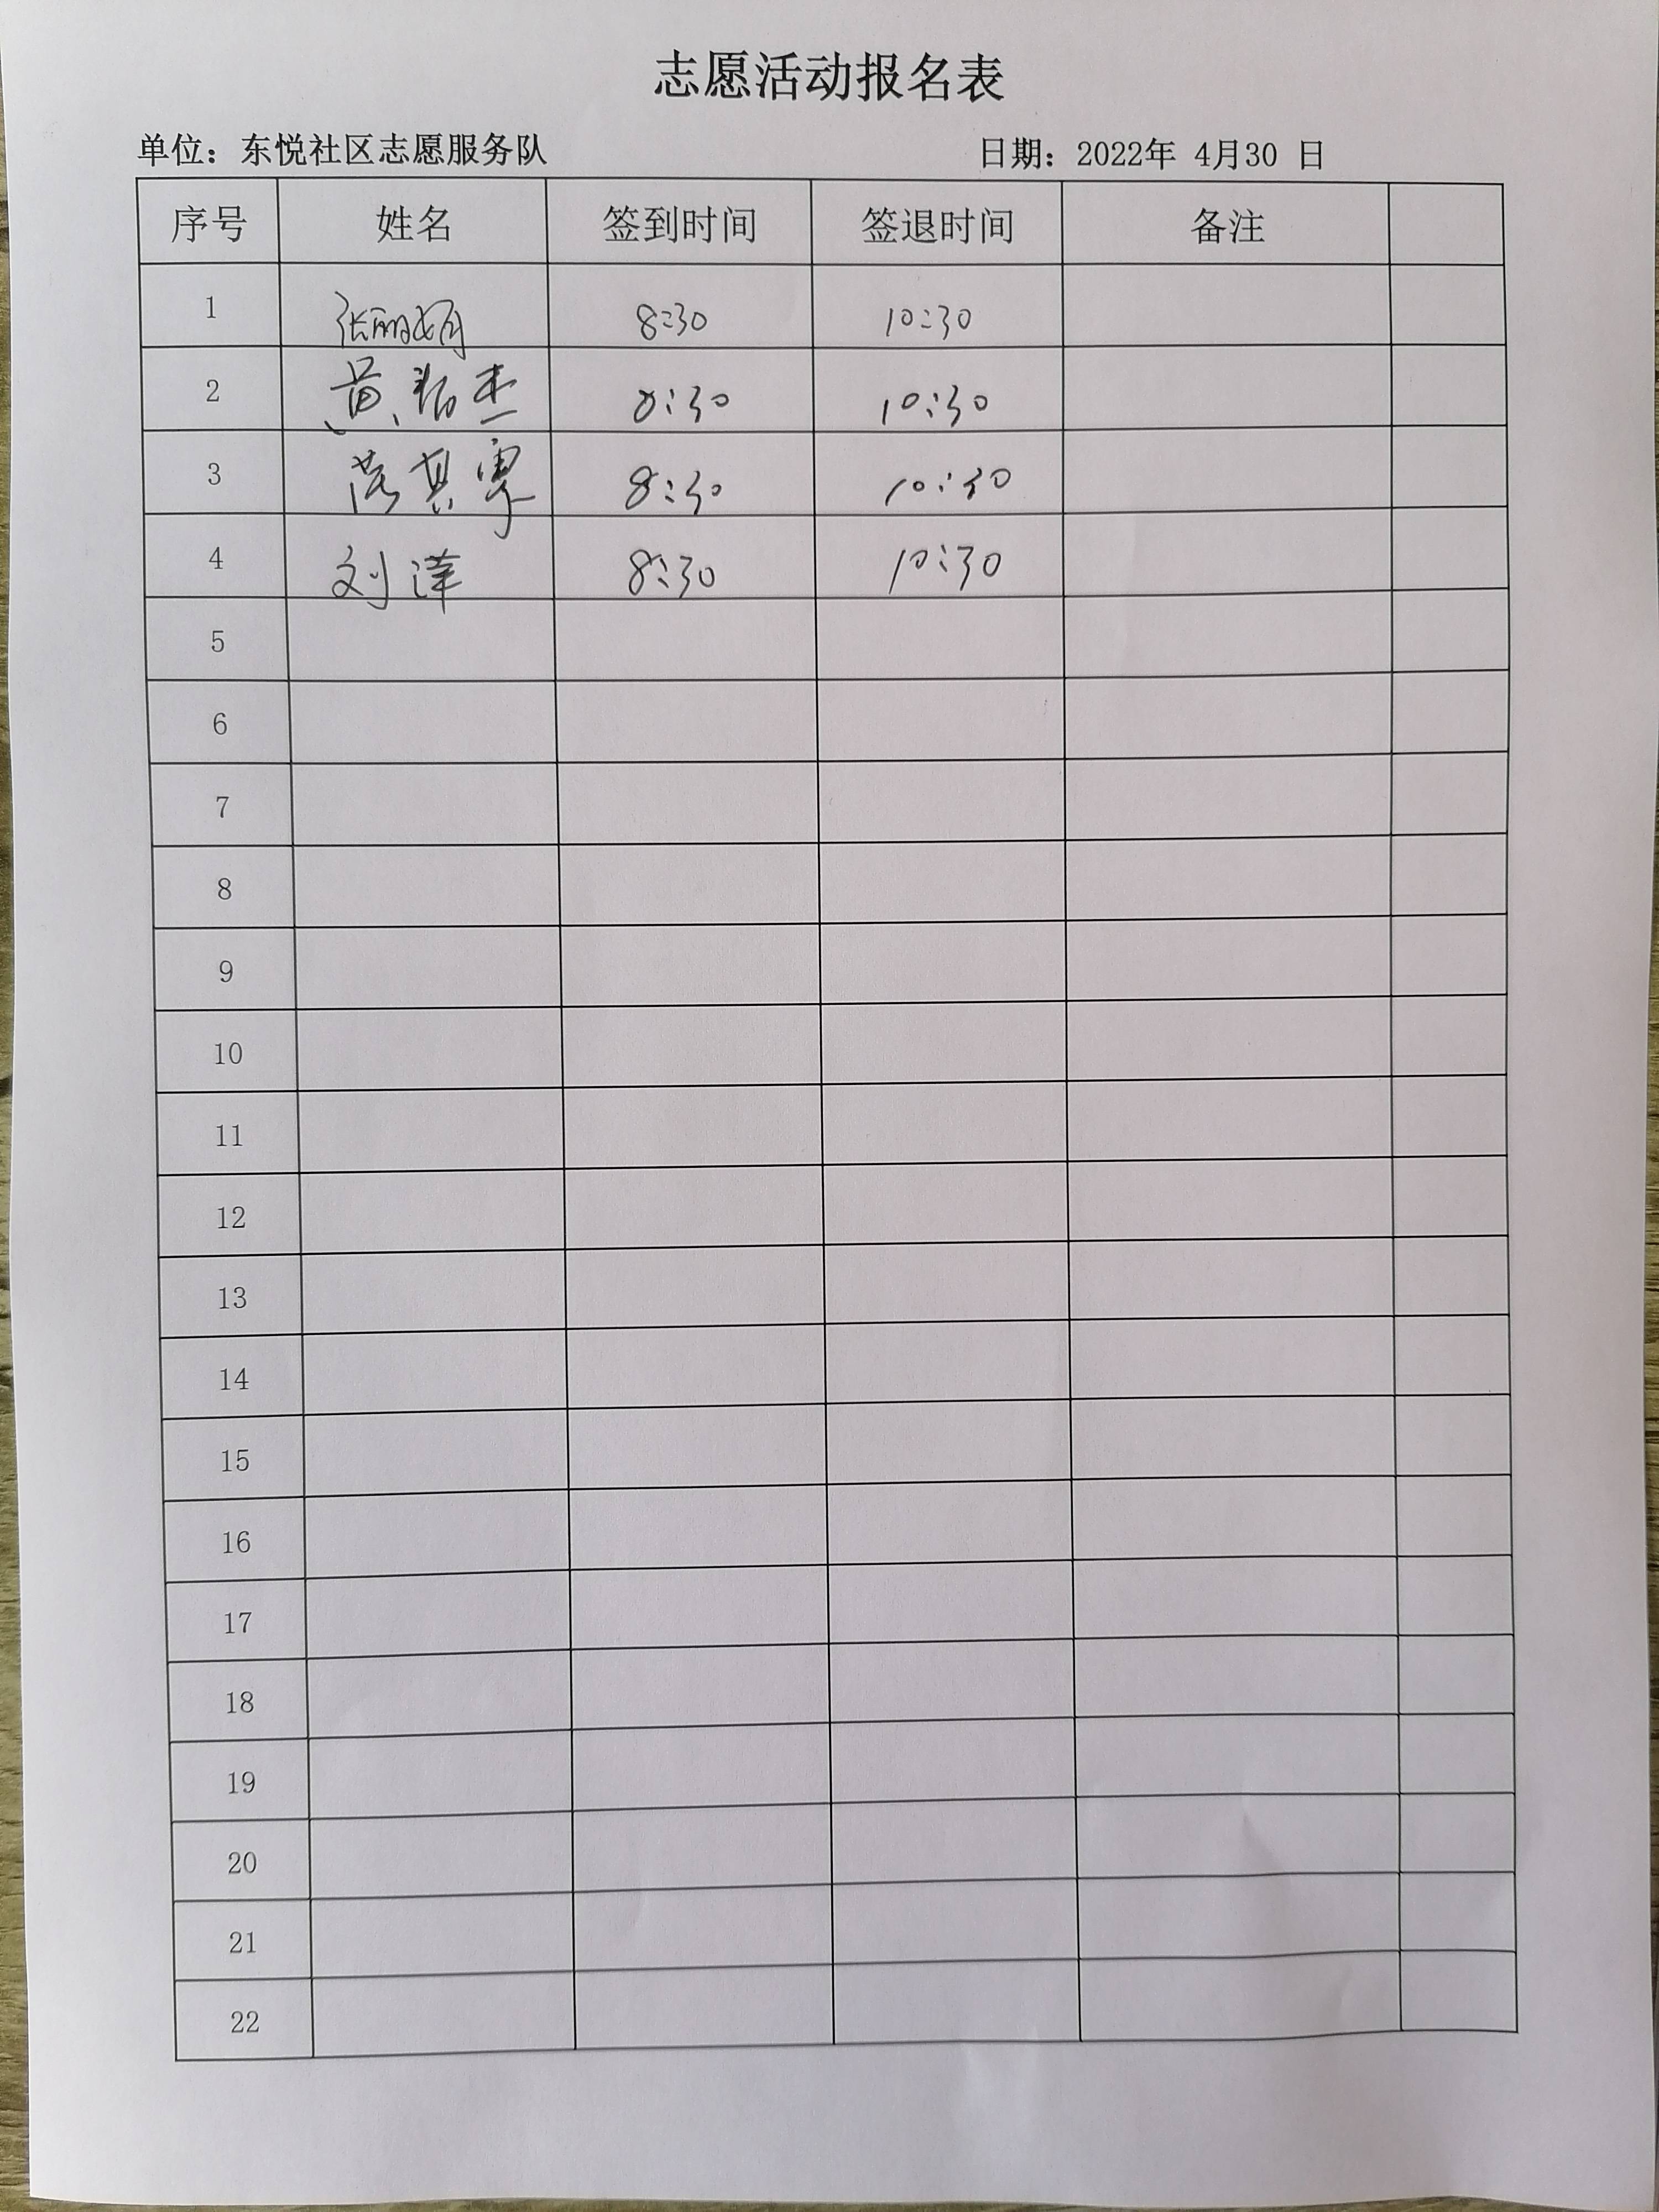 志愿活动报名表
单位：东悦社区志愿服务队 日期：2022年 4月30 日
序号 姓名 签到时间 签退时间 备注
1 张丽娟 8:30 10:30
2 黄 杰 8:30 10:30
3 其 8:30 10:30
4 刘洋 8:30 10:30
5
6
7
8
9
10
11
12
13
14
15
16
17
18
19
20
21
22